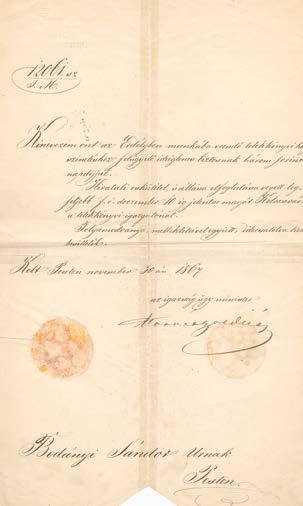 12061. sz
I. M.
Kinevezem önt az Erdélyben munkába veendő telekkönyvi
felügyelő ideiglenes biztosnak három forint
napdijjal.
Hivatali esküjének is állása elfoglalása végett leg-
feljebb f. é. december 10 ig jelentse magát Kolosvárt
a telekkönyvi igazgatónál.
Folyamodványa mellékleteivel együtt, idecsatolva
Kelt Pesten november 30 án 1867
az igazságügy minister
Bodányi Sándor Urnak
Pesten.